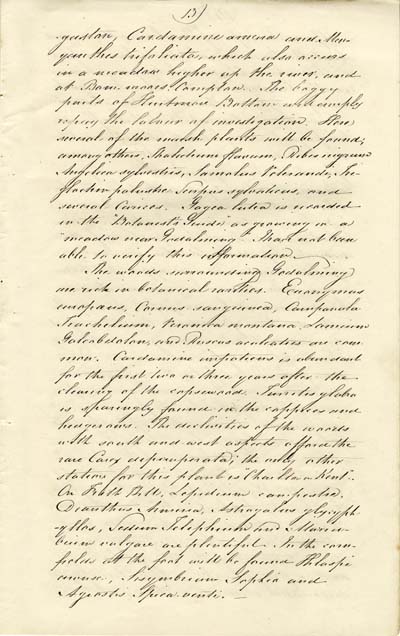 13)
gustan, Cardamine amara and Men-
yanthes trifoliata, which also occurs
in a meadow higher up the river, and
at Compton. The boggy
parts of Bottom will amply
repay the labour of investigation. Here
several of the marsh plants will be found;
among others, Thalictrum flavum, Ribes nigrum
Angelica sylvestris, Samolus Valerandi,
palustre Scirpus sylvaticus, and
several Carices. Gagea lutea is recorded
in the "Botanists Guide" as growing in a
"meadow near Godalming". I have not been
able to verify this information.
The woods surrounding Godalming
are rich in botanical rarities. Euonymus
europaeus, Cornus sanguinea, Campanula
Trachelium, Veronica montana, Lamium
Galeobdolon, and Ruscus aculeatus are com-
mon. Cardamine impatiens is abundant
for the first two or three years after the
clearing of the copsewood. Turritis glabra
is sparingly found in the coppices and
hedgerows. The declivities of the woods
with south and west aspects afford the
rare Carex depauperata; the only other
station for this plant is "Charlton Kent".
On Frith Hill, Lepidium campestre,
Dianthus Armeria, Astragalus glycyph-
yllos, Sedum Telephium and Marru-
bium vulgare are plentiful. In the corn-
fields at the foot will be found Thlaspi
arvense, Sisymbrium Sophia and
Agrostis Spica-venti. —